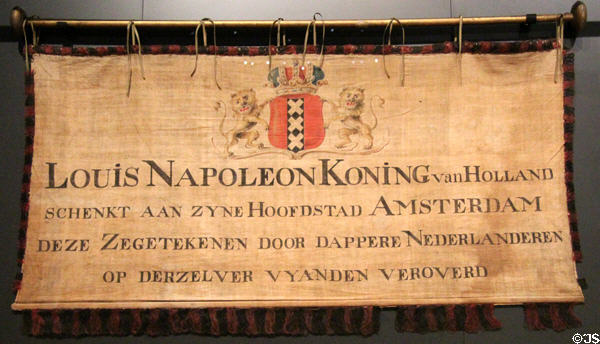 LOUIS NAPOLEON KONING van HOLLAND
SCHENKT AAN ZYNE HOOFDSTAD AMSTERDAM
DEZE ZEGETEKENEN DOOR DAPPERE NEDERLANDEREN
OP DERZELVER VYANDEN VEROVERD
©JS